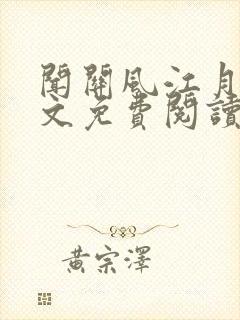 闢關風江月
文免費閱讀
黃宗澤